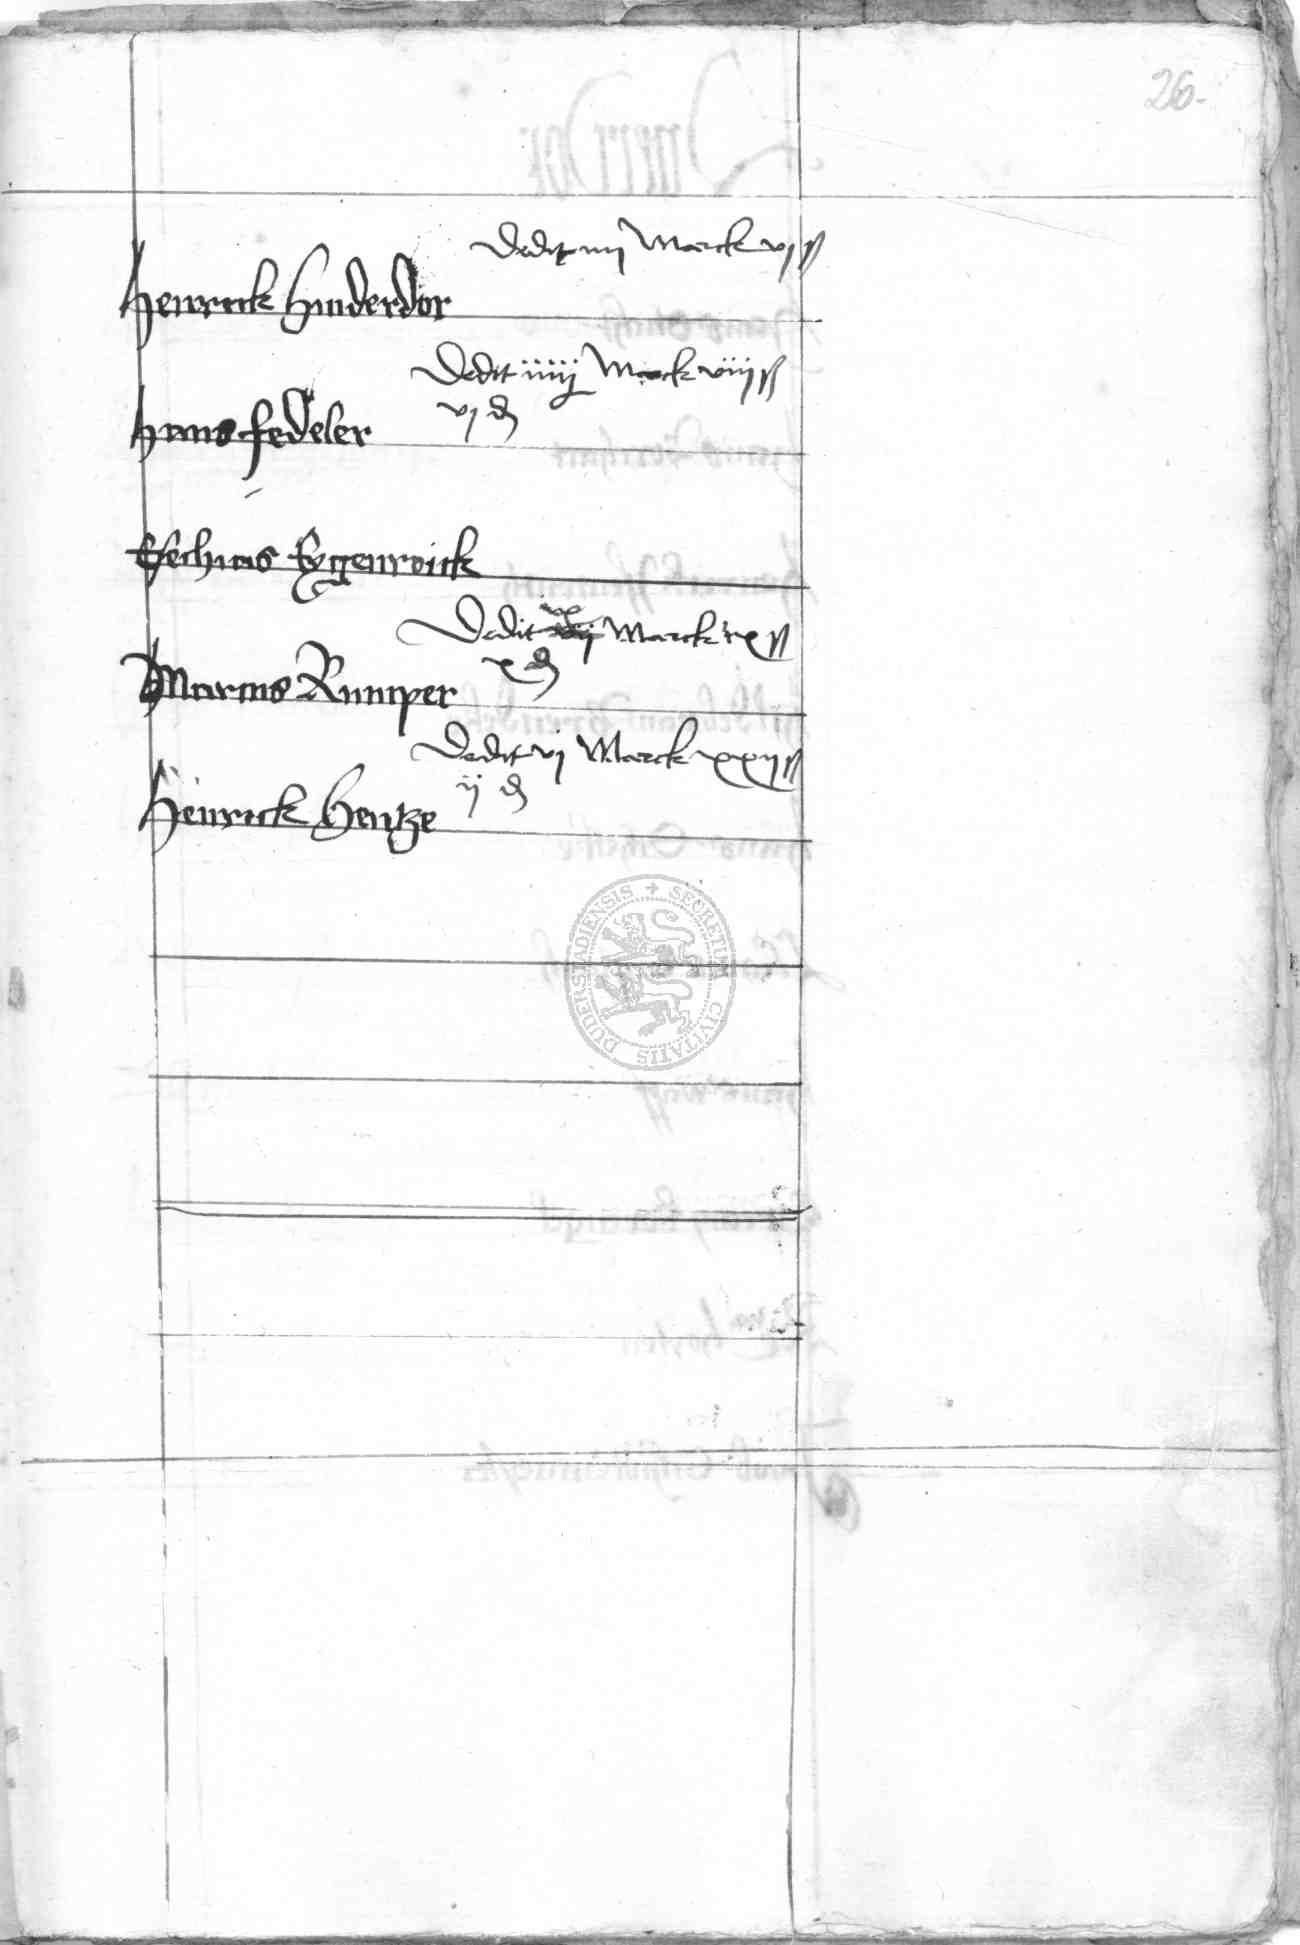 26.
dedit iiij Marck vj ß
Henrick Hinderdor
Dedit iiiij Marck viiij ß
vj ₰
Hans Fedeler
Eygenroick
Dedit Marck ß
x ₰
Marcus Rumper
Dedit vj Marck xxij ß
ij ₰
Henrick Hentze
SECRETUM CIVITATIS DUDERSTADIENSIS